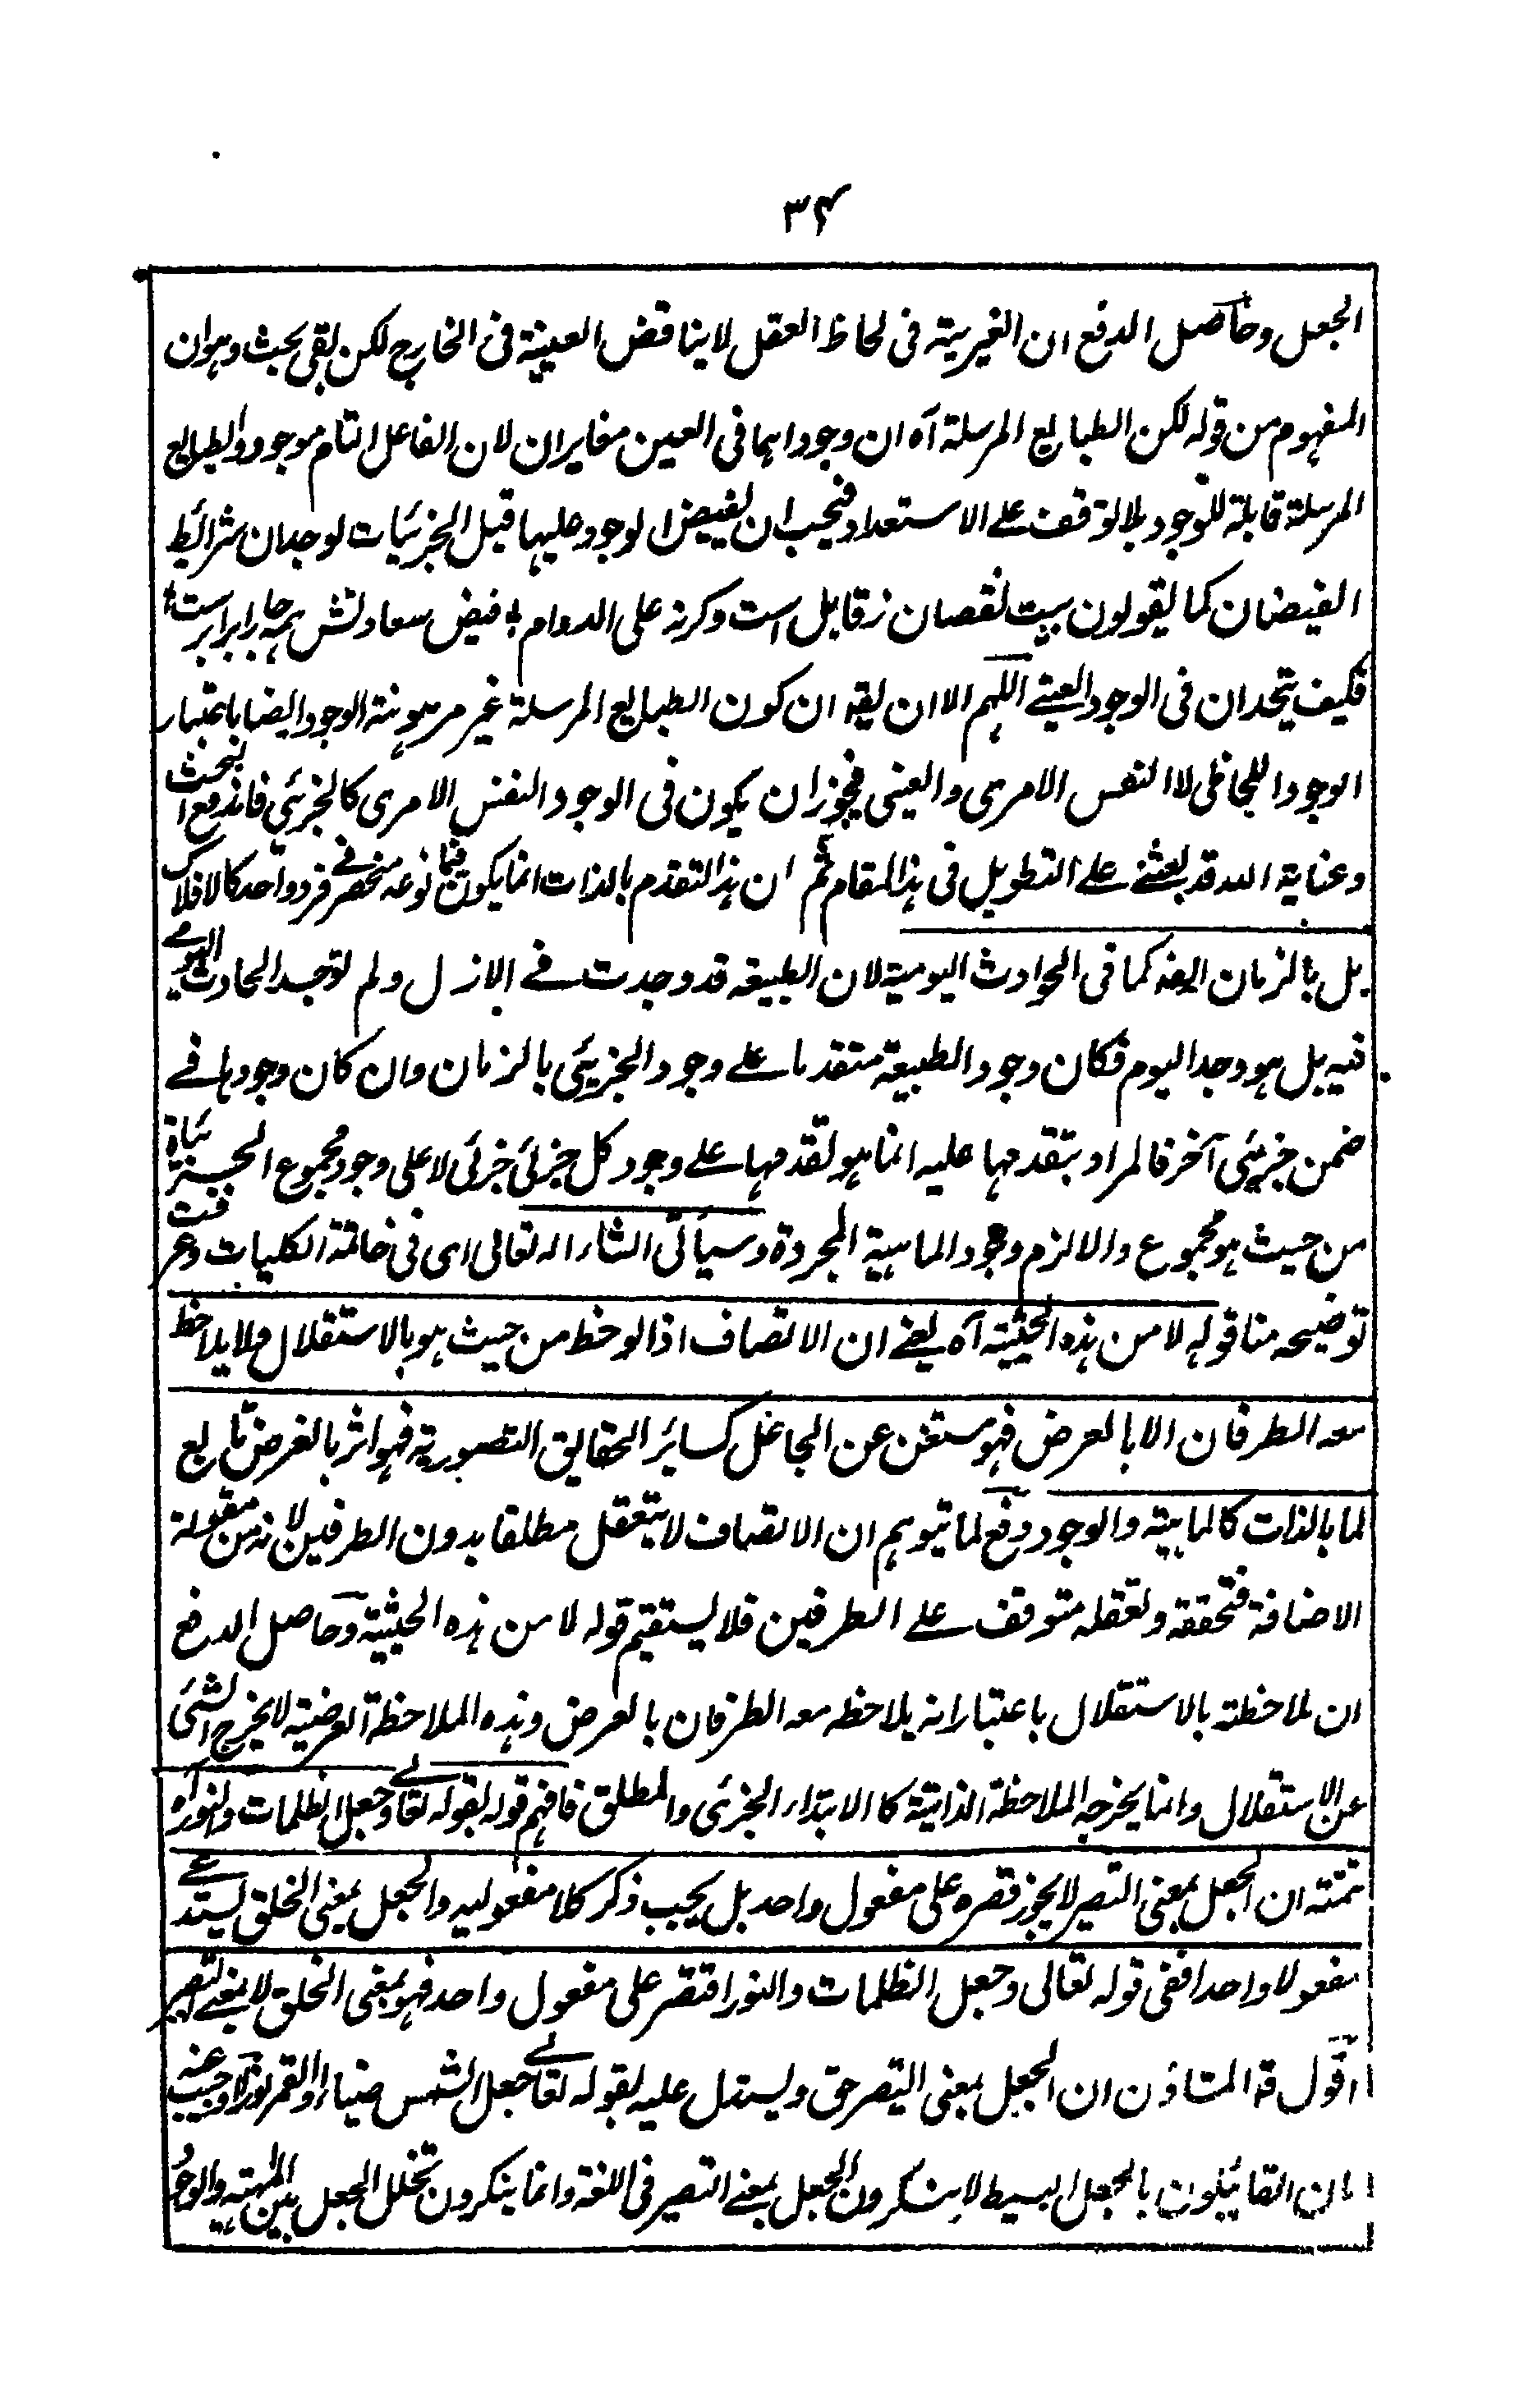 ٣٤
الجعل وحاصل الدفع ان الغيرية فى لحاظ العقل لا يناقض العينية فى الخارج لكن بقى بحث وهو ان
المفهوم من قوله لكن الطبايع المرسلة آه ان وجوداهما فى العين مغايران لان الفاعل التام موجود والطبايع
المرسلة قابلة للوجود بلا توقف على الاستعداد فيجب ان يفيض الوجود عليها قبل الجزئيات لوجدان شرائط
الفيضان كما يقولون بيت نقصان ز قابل است وگرنه على الدوام ؛ فيض سعادتش همه جا برابر است ؛
فكيف يتحدان فى الوجود العينے اللهم الا ان يقه ان كون الطبايع المرسلة غير مرهونة الوجود ايضا باعتبار
الوجود اللحاظى لا النفس الامرى والعينى فيجوز ان يكون فى الوجود النفس الامرى كالجزئي فاندفع البحث
وعناية الله قد بعثنے علے التطويل فى هذا المقام ثم ان هذا التقدم بالذات انما يكون فيما نوعه منحصر فے فرد واحد كالافلاك
بل بالزمان ايضه كما فى الحوادث اليومية لان الطبيعة قد وجدت فے الازل ولم توجد الحادث اليومے
فيه بل هو وجد اليوم فكان وجود الطبيعة متقدما علے وجود الجزئي بالزمان وان كان وجودها فے
ضمن جزئي آخر فالمراد بتقدمها عليه انما هو تقدمها علے وجود كل جزئي جزئي لا على وجود مجموع الجزئيات
من حيث هو مجموع والا لزم وجود الماهية المجردة وسيأتى انشاء اله تعالى اى فى خاتمة الكليات وعرفت
توضيحه منا قوله لا من هذه الحيثية آه يعنے ان الاتصاف اذا لوحظ من حيث هو بالاستقلال ولا يلاحظ
معه الطرفان الا بالعرض فهو مستغن عن الجاعل كسائر الحقايق التصورية فهو اثر بالعرض تابع
لما بالذات كالماهية والوجود دفع لما يتوهم ان الاتصاف لا يتعقل مطلقا بدون الطرفين لانه من مقولة
الاضافة فتحققه وتعقله متوقف علے الطرفين فلا يستقيم قوله لا من هذه الحيثية وحاصل الدفع
ان ملاحظته بالاستقلال باعتبار انه يلاحظ معه الطرفان بالعرض وهذه الملاحظة العرضية لا يخرج الشئ
عن الاستقلال وانما يخرجه الملاحظة الذاتية كالابتداء الجزئى والمطلق فافهم قوله بقوله تعالے وجعل الظلمات والنور آه
تمته ان الجعل بمعنى التصير لا يجوز قصره على مفعول واحد بل يجب ذكر كلا مفعوليه والجعل بمعنى الخلق يستدعے
مفعولا واحدا ففى قوله تعالى وجعل الظلمات والنور اقتصر على مفعول واحد فهو بمعنى الخلق لا بمعنے التصير
اقول قه المشاؤن ان الجعل بمعنى التيصر حق ويستدل عليه بقوله تعالے جعل الشمس ضياء والقمر نورا واجيب عنه
بان القائيلون بالجعل البسيط لا ينكرون الجعل بمعنے التصير فى اللغة وانما ينكرون تخلل الجعل بين المهية والوجود